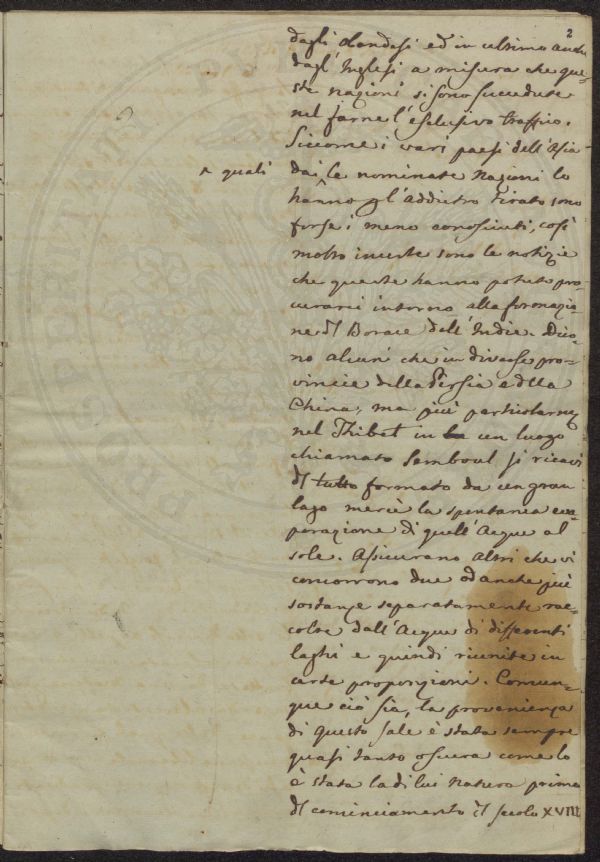 2
dagli olandesi ed in ultimo anche
dagl'Inglesi a misura che que-
ste nazioni si sono succedute
nel farne l'esclusivo traffico.
Siccome i vari paesi dell'Asia
^ quali
dai le nominate Nazioni lo
hanno l'addietro tirato sono
forse i meno conosciuti, così
molto incerte sono le notizie
che queste hanno potuto pro-
curarci intorno alla formazio-
ne del Borace dell'Indie. Dico-
no alcuni che in diverse pro-
vincie della Persia e della
China, ma più particolarm
nel Thibet in un luogo
chiamato Semboul si ricavi
del tutto formato da un gran
lago mercè la spontanea eva
porazione di quell'Acque al
sole. Assicurano Altri che vi
concorrono due od anche più
sostanze separatamente rac-
colte dall'Acque di differenti
laghi e quindi riunite in
certe proporzioni. Comun-
que ciò sia, la provenienza
di questo sale è stata sempre
quasi tanto oscura come lo
è stata la di lui Natura prima
del cominciamento del secolo XVIII